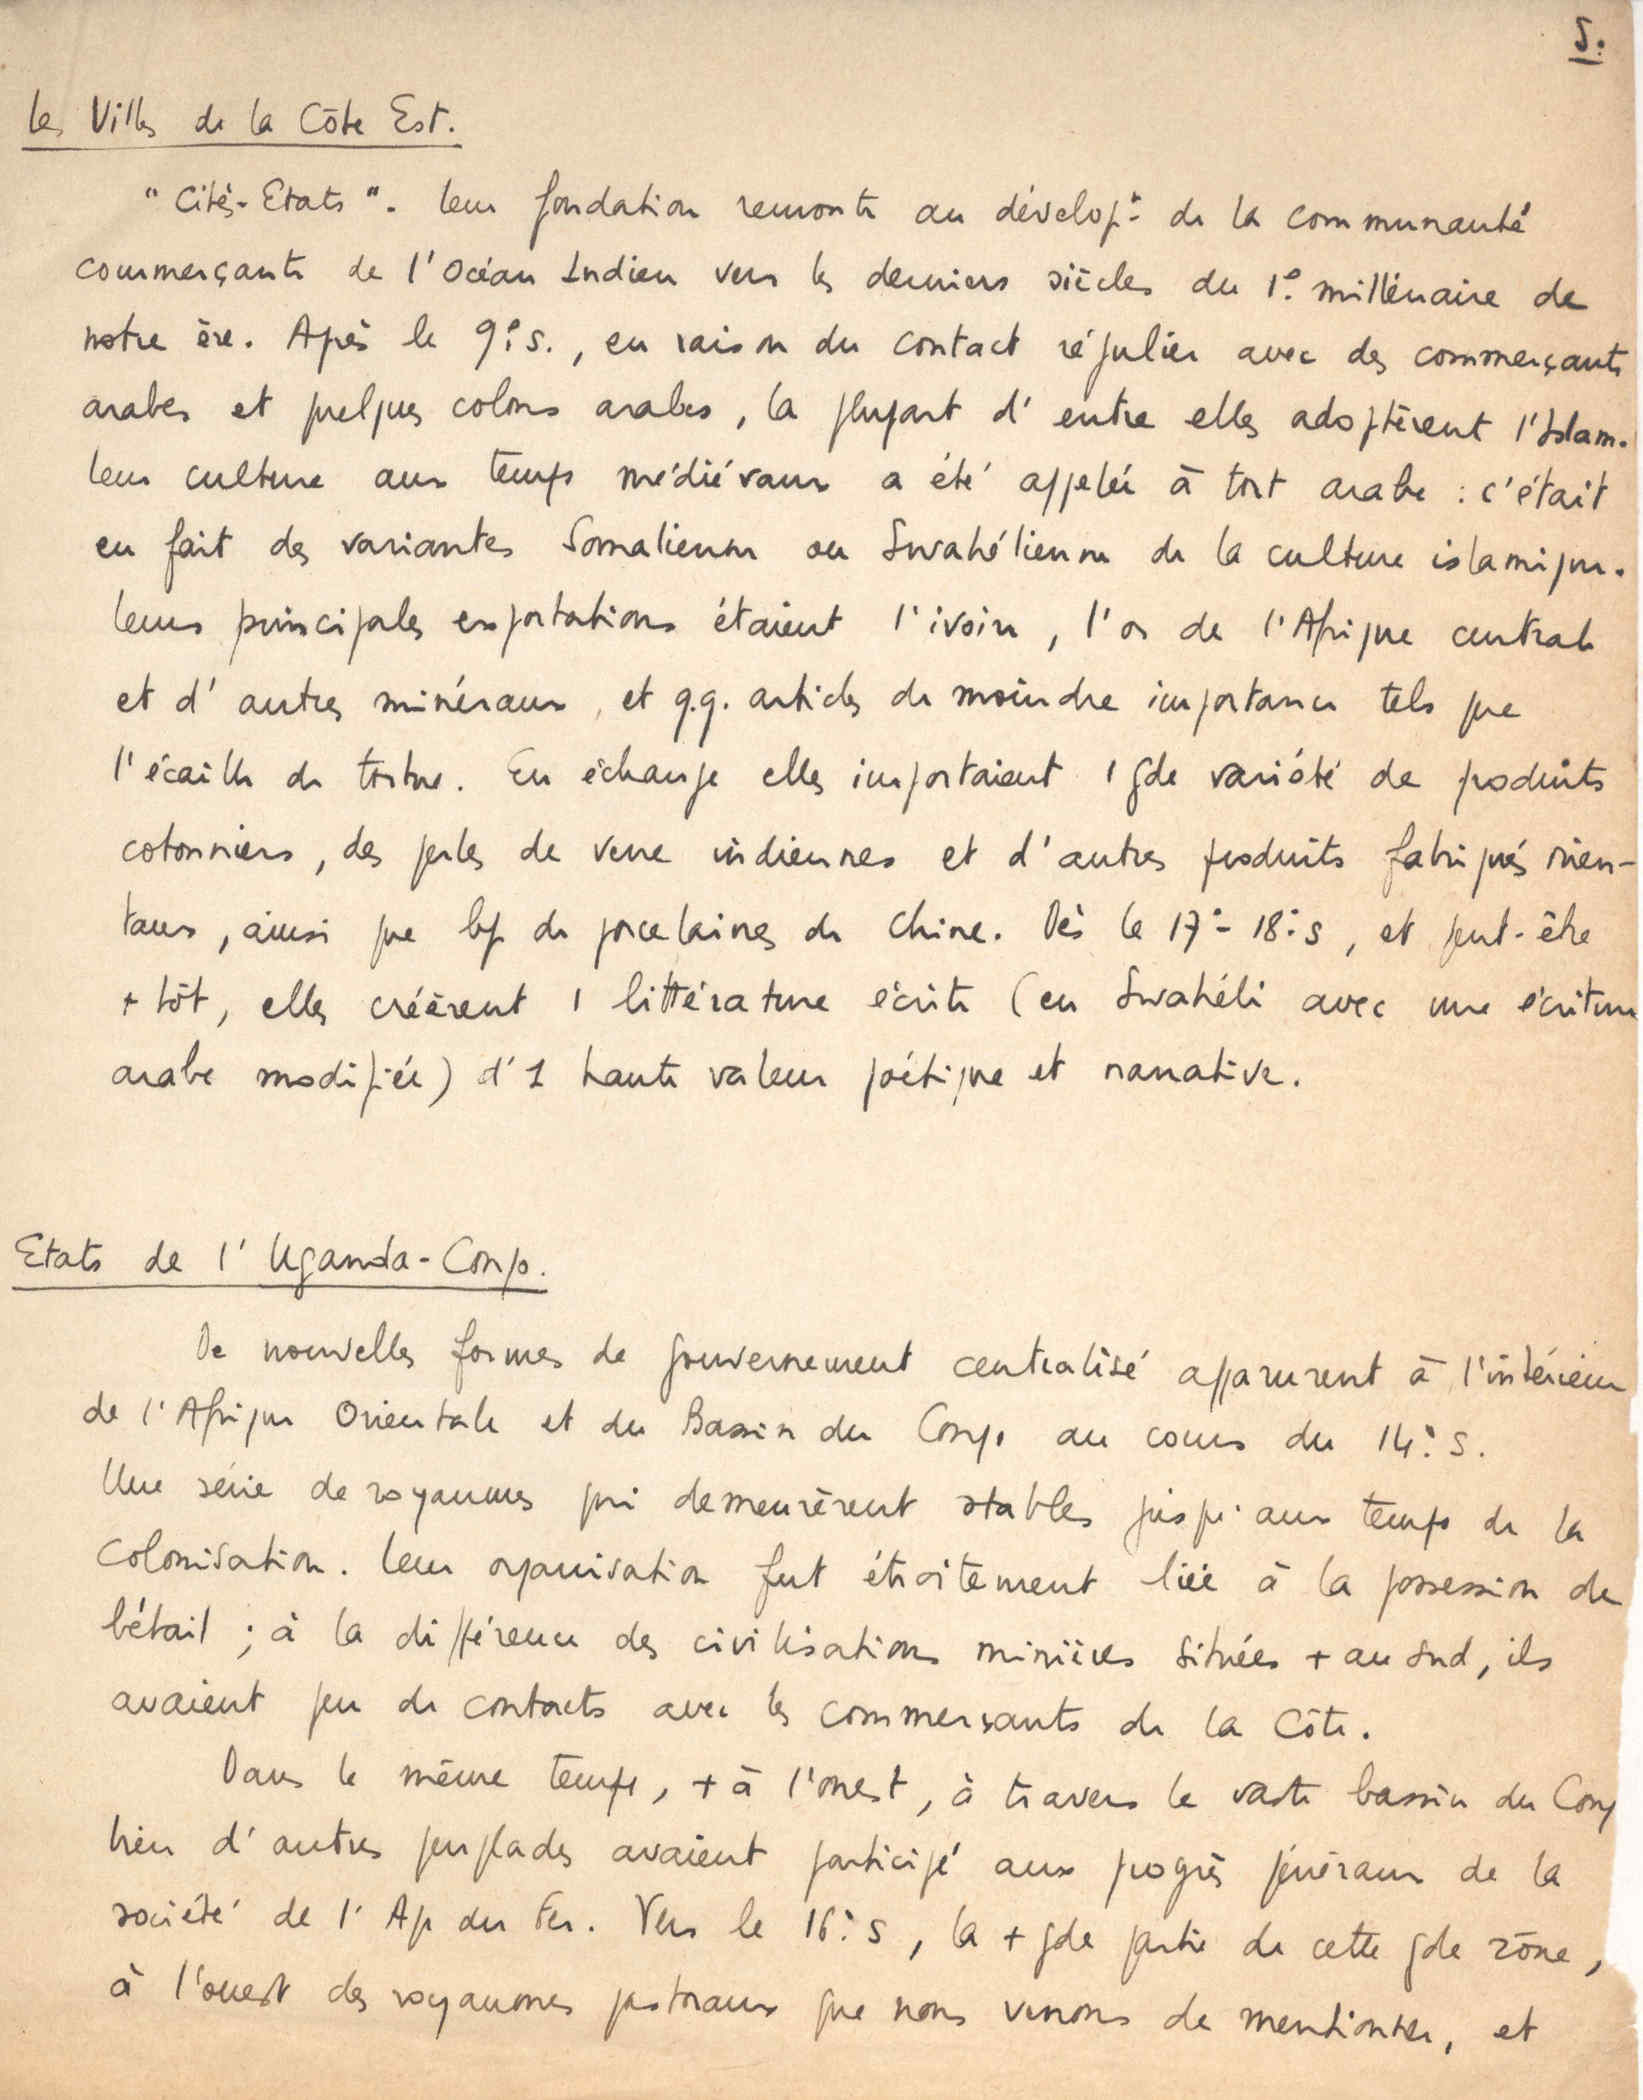 5.
Les Villes de la Côte Est.
"Cités-Etats". Leur fondation remonte au dévelopt de la communauté
commerçante de l'Océan Indien vers les derniers siècles du 1e millénaire de
notre ère. Après le 9e s., en raison du contact régulier avec des commerçants
arabes et quelques colons arabes, la plupart d'entre elles adoptèrent l'Islam.
Leur culture aux temps médiévaux a été appelée à tort arabe : c'était
en fait des variantes Somalienne ou Swahélienne de la culture islamique.
Leurs principales exportations étaient l'ivoire, l'or de l'Afrique centrale
et d'autres minéraux, et q.q. articles de moindre importance tels que
l'écaille de tortue. En échange elles importaient 1 gde variété de produits
cotonniers, des perles de verre indiennes et d'autres produits fabriqués orien-
taux, ainsi que bp de porcelaines de Chine. Dès le 17e-18e s, et peut-être
+ tôt, elles créèrent 1 littérature écrite (en Swahéli avec une écriture
arabe modifiée) d'1 haute valeur poétique et narrative.
Etats de l'Uganda-Congo.
De nouvelles formes de gouvernement centralisé apparurent à l'intérieur
de l'Afrique Orientale et du Bassin du Congo au cours du 14e s.
Une série de royaumes qui demeurèrent stables jusqu'aux temps de la
colonisation. Leur organisation fut étroitement liée à la possession de
bétail ; à la différence des civilisations minières situées + au Sud, ils
avaient peu de contacts avec les commerçants de la Côte.
Dans le même temps, + à l'ouest, à travers le vaste bassin du Cong
bien d'autres peuplades avaient participé aux progrès généraux de la
société de l'Age du Fer. Vers le 16e s, la + gde partie de cette gde zône,
à l'ouest des royaumes pastoraux que nous venons de mentionner, et